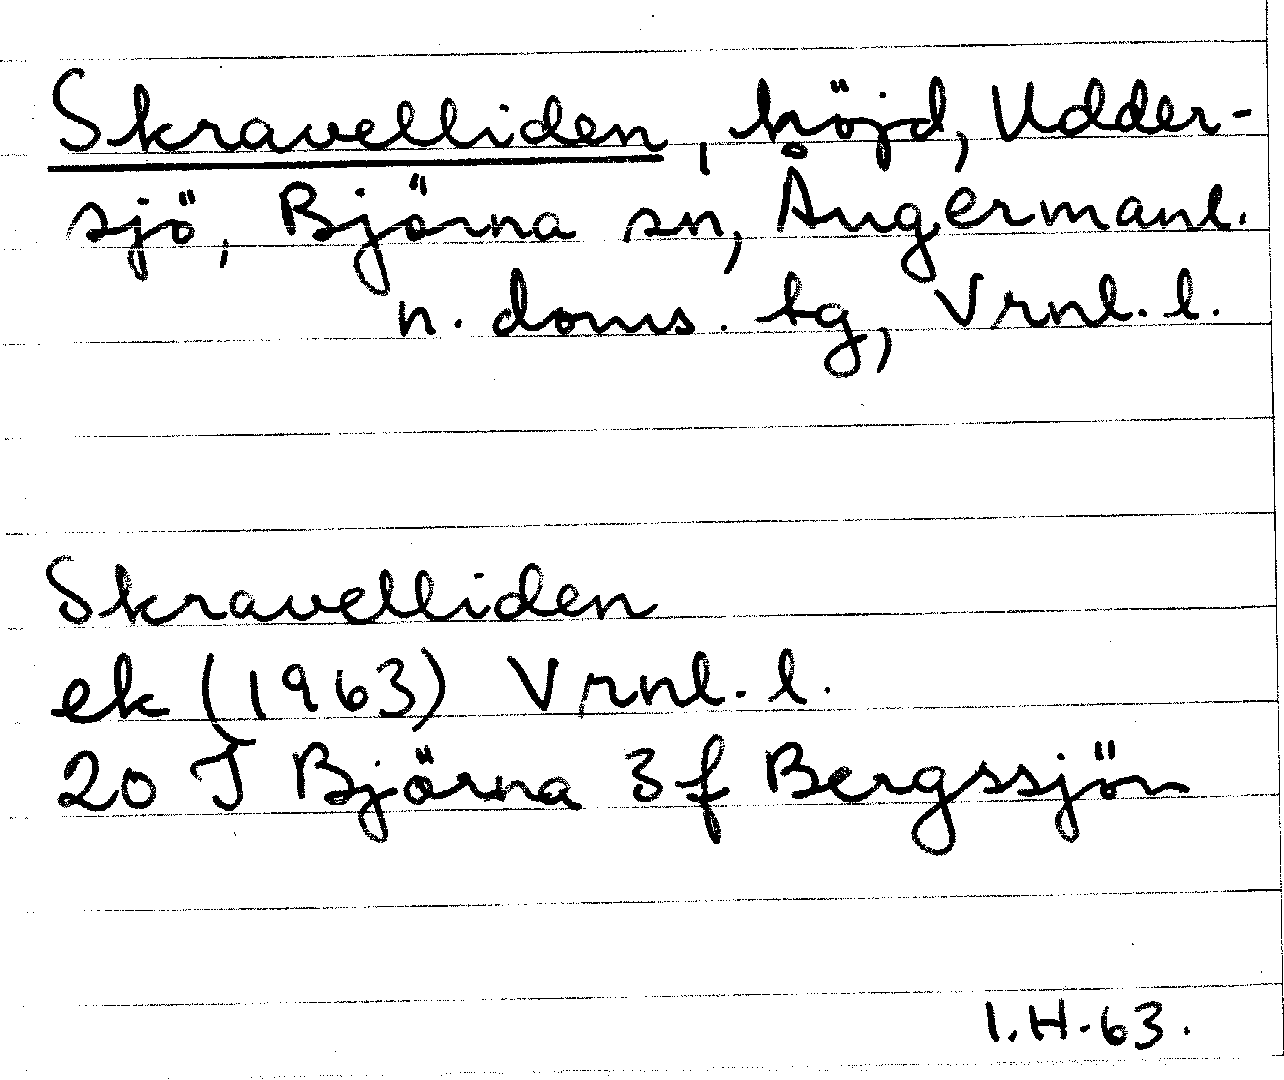 Skravelliden, höjd, Udder-
sjö, Björna sn, Ångermanl.
n. doms. tg, Vrnl. l.
Skravelliden
ek (1963) Vrnl. l.
20 J Björna 3 f Bergssjön
I.H-63.